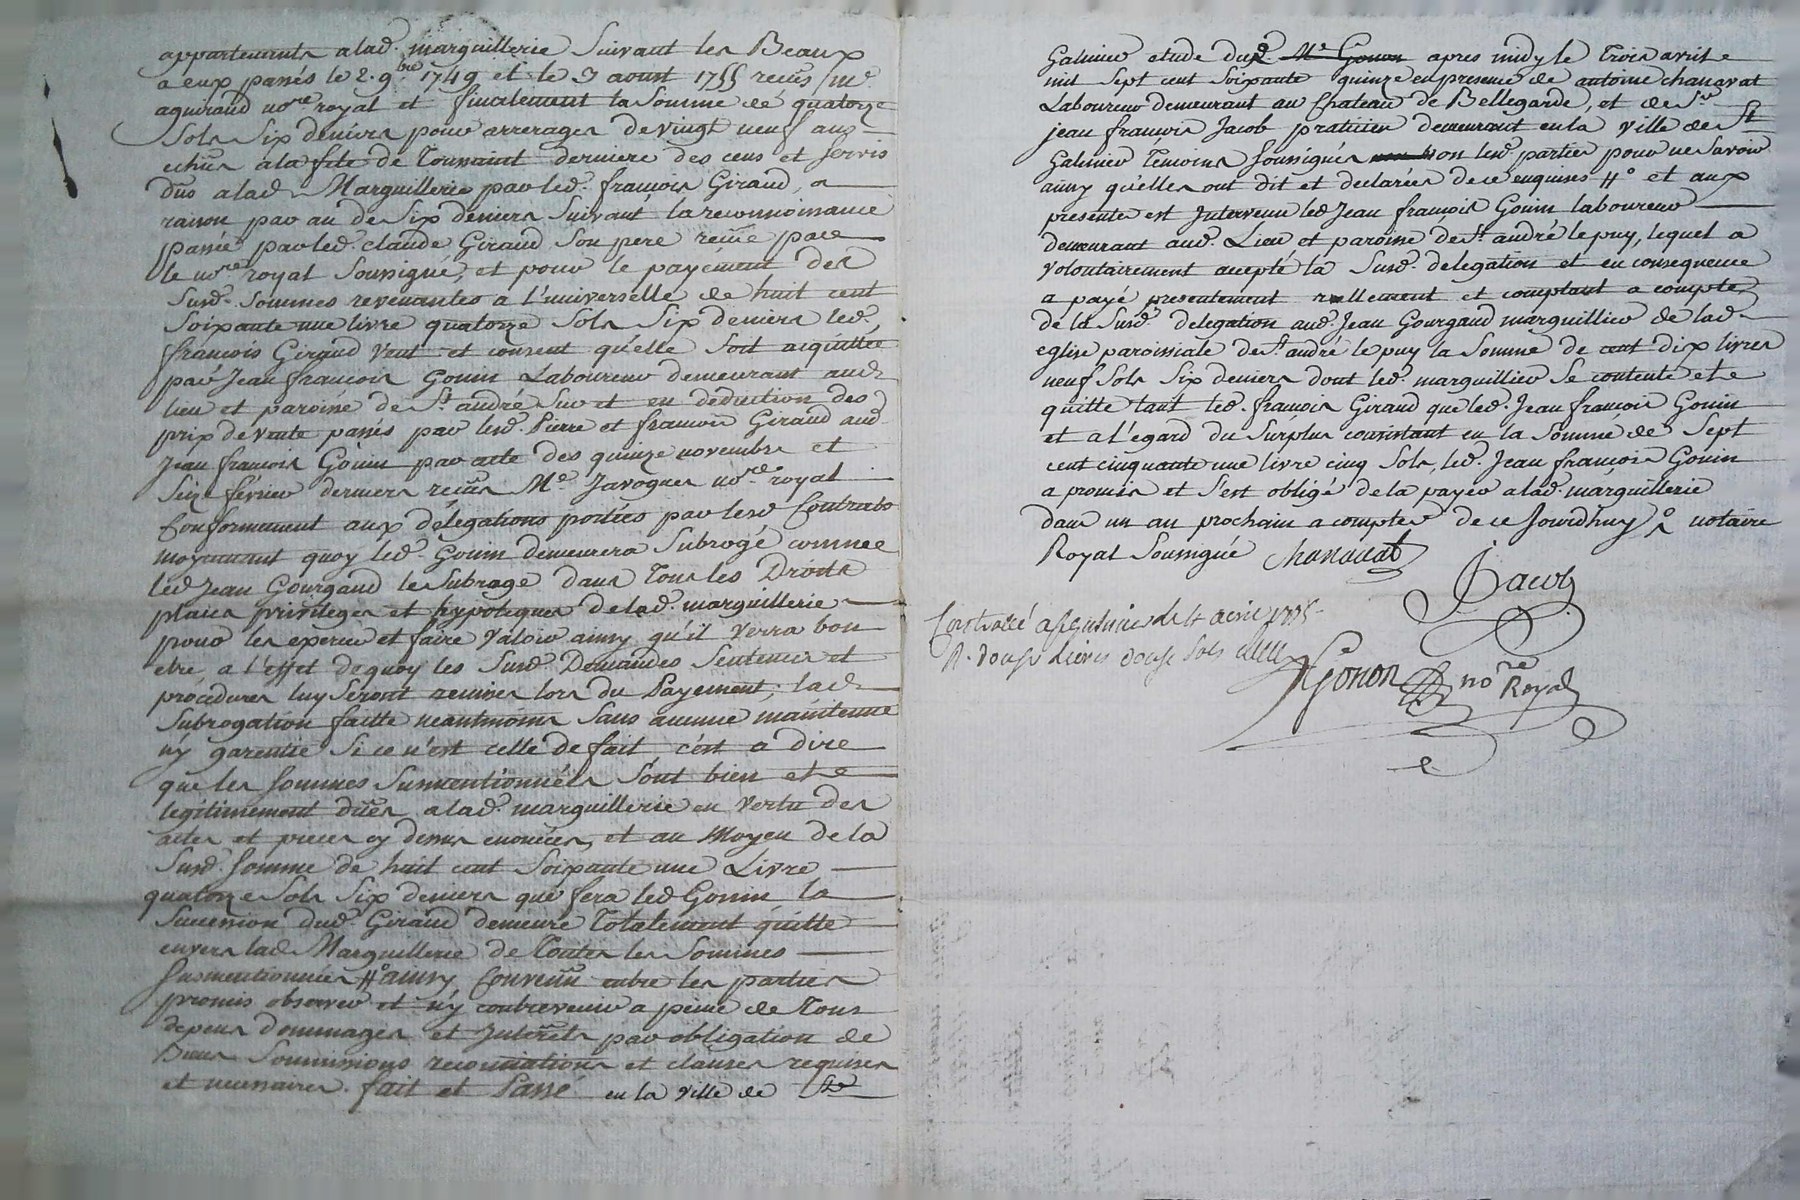 appartenants alad. marguillerie Suivant les Beaux
a eux passés le 2. 9bre 1749 et le 3 aoust 1755 recus Me
aguiraud nore royal et finalement la Somme de quatorze
Sols Six deniers pour arrerages de vingt neuf ans
echus a la fete de Toussaint derniere des cens et servis
dus alad. Marguillerie par led. francois Giraud, a
raison par an de Six deniers Suivant la reconnoissance
passée par led. claude Giraud Son pere recue par
le nore royal Soussigné, et pour le payement des
Susd. Sommes revenantes a l'universelle de huit cent
Soixante une livre quatorze Sols Six deniers led.
francois Giraud veut et consent qu'elle Soit acquittée
par Jean francois Gonin Laboureur demeurant aud.
lieu et paroisse de St. andré Sur et en deduction des
prix de vente passés par lesd. Pierre et francois Giraud aud.
Jean francois Gonin par acte des quinze novembre et
Six février derniers recus Me. Javogues nore royal
Conformement aux délegations portées par lesd Contrats
moyennant quoy led. Gonin demeurera Subrogé comme
led Jean Gourgaud le Subroge dans Tous les Droits
places privileges et hypoteques de lad. marguillerie
pour les exercer et faire valoir ainsy qu'il verra bon
etre, a l'effet de quoy les Susd. Demandes Sentences et
procedures luy Seront remises lors du Payement, lad.
Subrogation faitte neantmoins Sans aucune maintenue
ny garentie Si ce n'est celle de fait, c'est a dire
que les Sommes Susmentionnées Sont bien et
legitimement dues alad. marguillerie en vertu des
actes et pieces cy dessus enoncées, et au Moyen de la
Susd. Somme de huit cent Soixante une Livre
quatorze Sols Six deniers que fera led Gonin, la
Succession dud. Giraud demeure Totalement quitte
envers lad. Marguillerie de Toutes les Sommes
Susmentionnées ainsy Convenu entre les parties
promis observer et n'y contrevenir a peine de Tous
depens dommages et Interets par obligation de
Biens Soumissions renonciations et clauses requises
et necessaires. fait et Passé en la ville de St
Galmier etude dud. Me Gonon apres midy le Trois avril
mil Sept cent Soixante quinze en presence de antoine chanavat
Laboureur demeurant au Chateau de Bellegarde, et de Sr
jean francois Jacob praticien demeurant en la ville de St
Galmier Temoins Soussignés non lesd. parties pour ne Savoir
ainsy qu'elles ont dit et declarées de ce enquises et aux
presentes est Intervenu led Jean francois Gonin laboureur
demeurant aud. Lieu et paroisse de St. andré le puy, lequel a
volontairement accepté la Susd. delegation et en consequence
a payé presentement reellement et comptant a compte
de la Susd. delegation aud. Jean Gourgaud marguillier de lad.
eglise paroissiale de St. andré le puy la Somme de cent dix livres
neuf Sols Six deniers dont led. marguillier Se contente et
quitte tant led. francois Giraud que led. Jean francois Gonin
et a l'egard du Surplus consistant en la Somme de Sept
cent cinquante une livre cinq Sols, led. Jean francois Gonin
a promis et S'est obligé de la payer alad. marguillerie
dans un an prochain a compter de ce Jourdhuy notaire
Royal Soussigné Chanavat
Jacob
Controllé a St Galmier le 4 avril 1775
R. douze Livres douze Sols
Gonon nore Royal